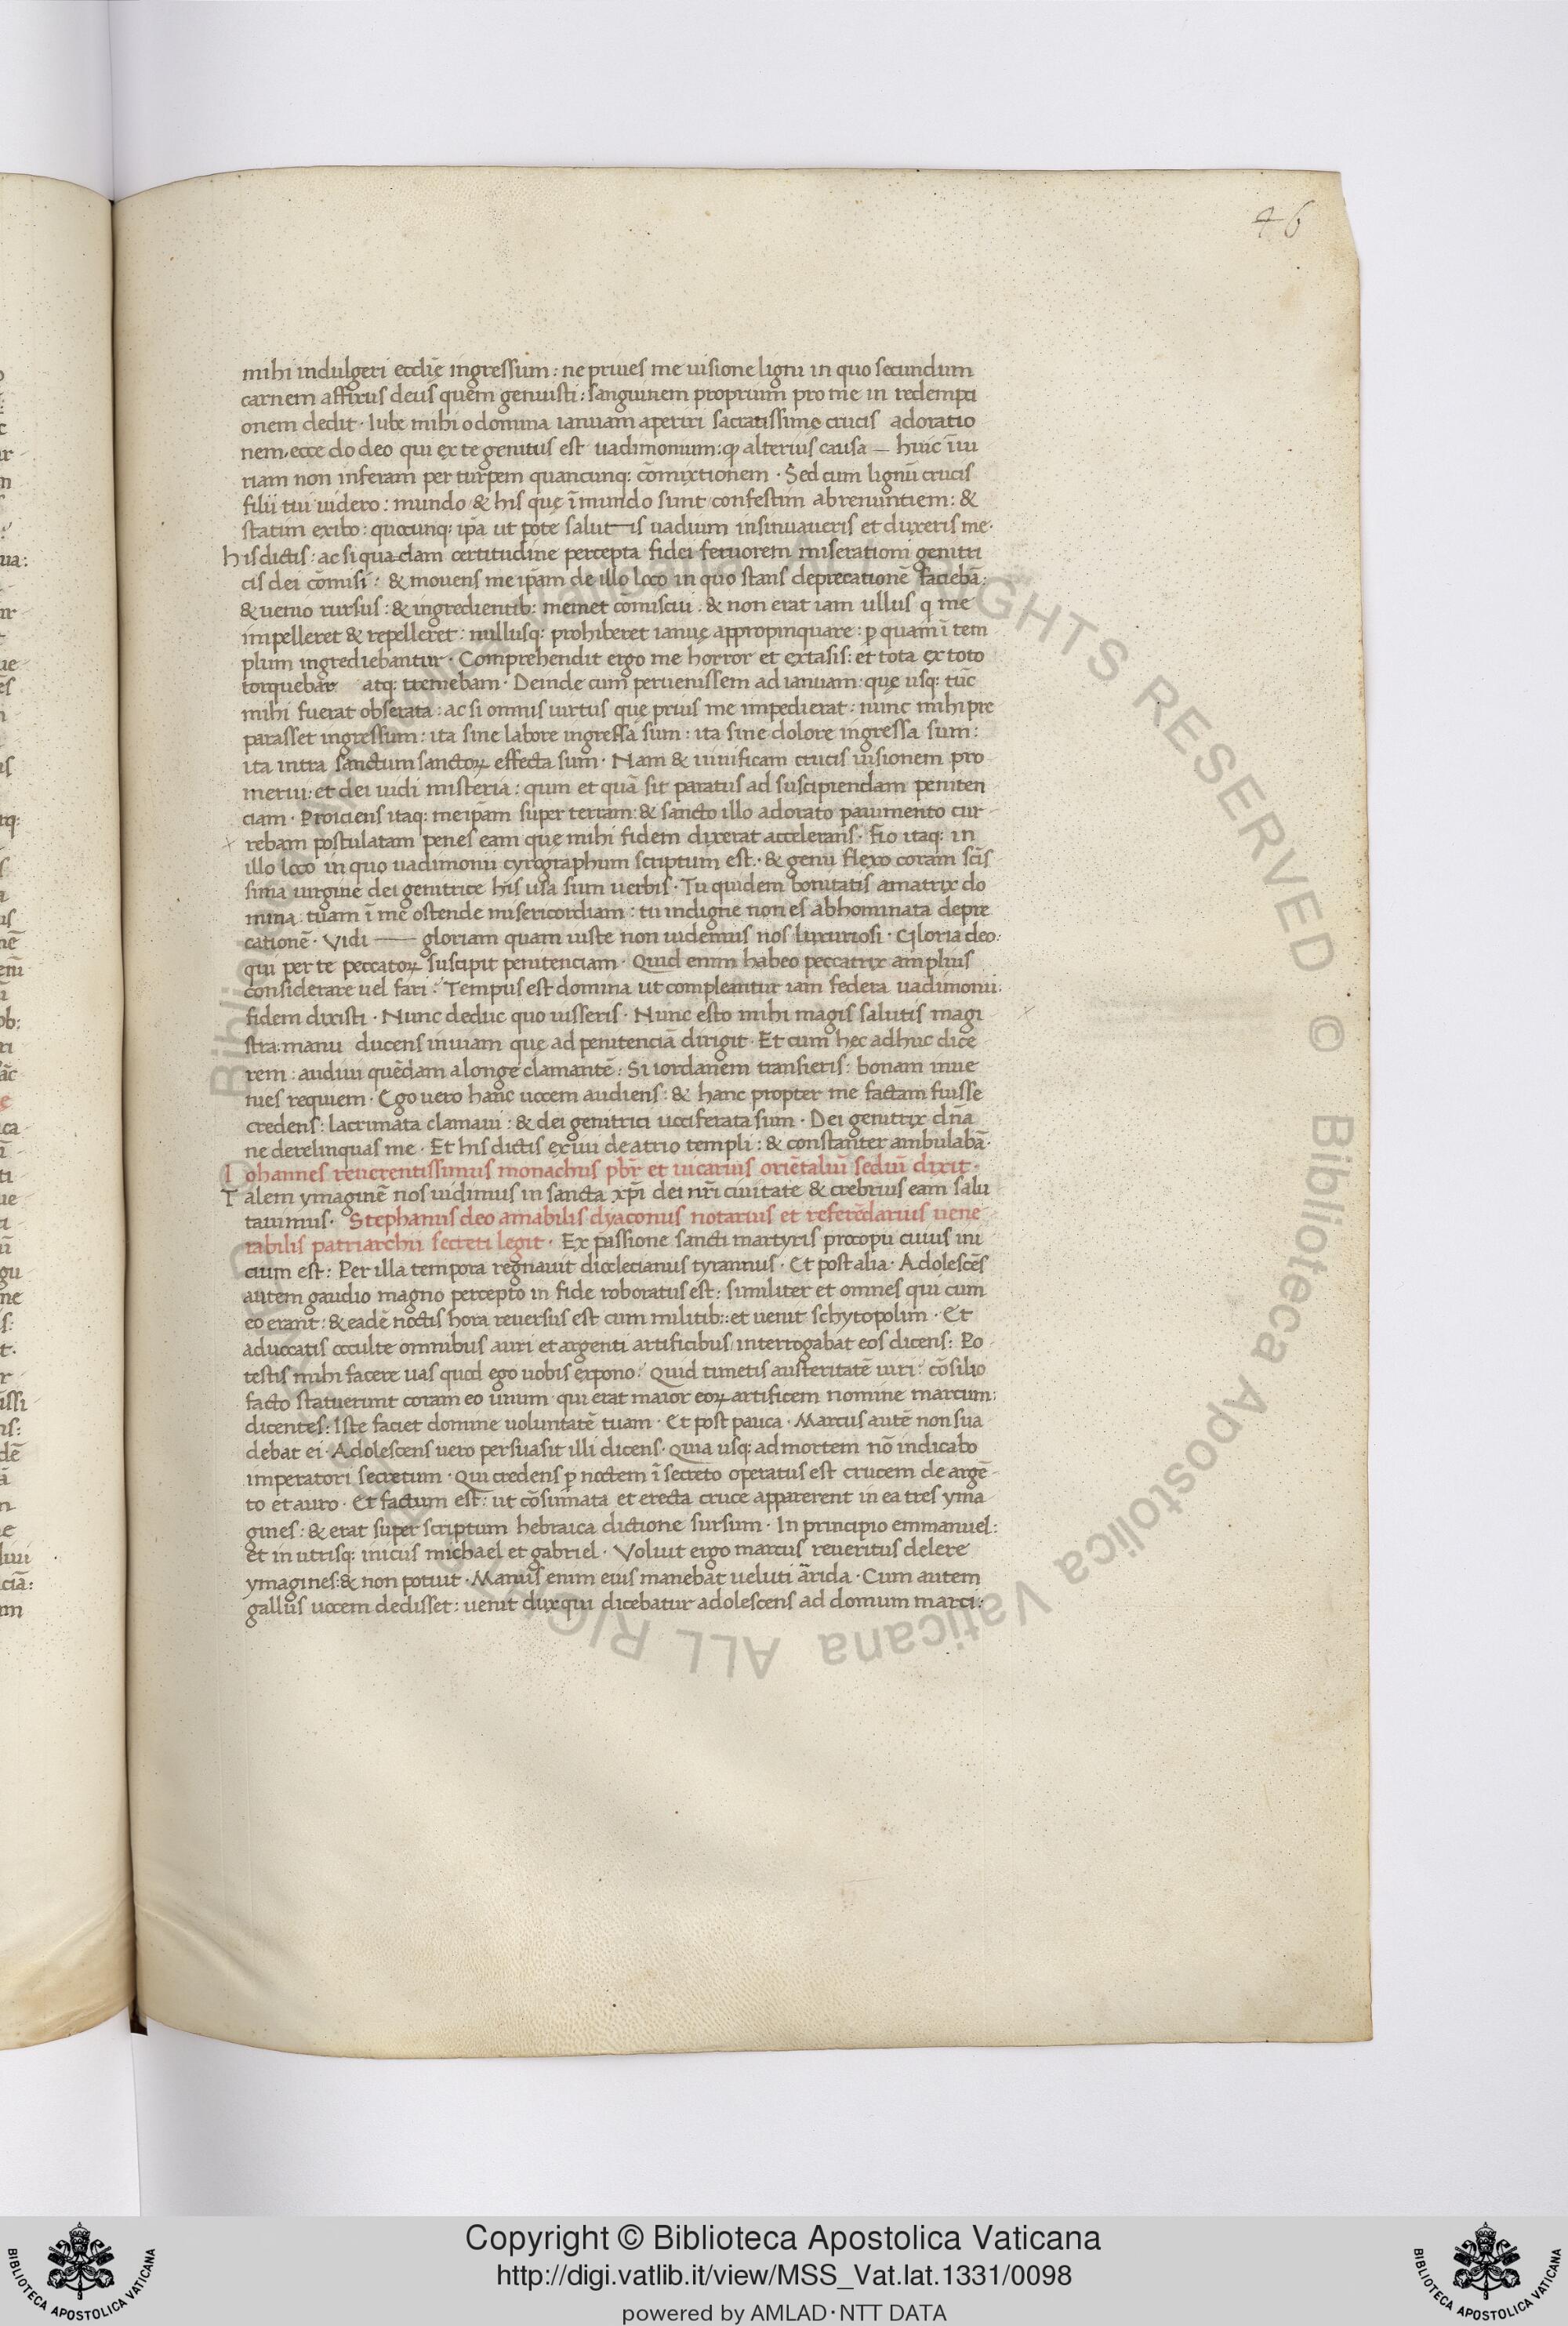 46
mihi indulgeri ecclīę ingressum : ne priues me uisione ligni in quo secundum
carnem affixus deus quem genuisti : sanguinem proprium pro me in redempti
onem dedit · Iube mihi o domina ianuam aperiri sacratissimę crucis adoratio
nem · ecce do deo qui ex te genitus est uadimonium : ꝙ alterius causa — huic īiu
riam non inferam per turpem quancunq: cōmixtionem · Sed cum lignū crucis
filii tui uidero : mundo & his quę ī mundo sunt confestim abrenuntiem : &
statim exibo : quocunq: ip̄a ut pote salut—is uadium insinuaueris et duxeris me ·
his dictis : ac si quadam certitudine percepta fidei feruorem miserationi genitri
cis dei cōmisi : & mouens me ip̄am de illo loco in quo stans deprecationē faciebā :
& uenio rursus : & ingredientib: memet cōmiscui . & non erat iam ullus q me
impelleret & repelleret : nullusq: prohiberet ianuę appropinquare : p quam ī tem
plum ingrediebantur · Comprehendit ergo me horror et extasis : et tota ex toto
torquebar atq: tremebam · Deinde cum peruenissem ad ianuam : quę usq: tūc
mihi fuerat obserata : ac si omnis uirtus quę prius me impedierat : nunc mihi pre
parasset ingressum : ita sine labore ingressa sum : ita sine dolore ingressa sum :
ita intra sanctum sanctoꝝ effecta sum · Nam & uiuificam crucis uisionem pro
merui : et dei uidi misteria : qum et quā sit paratus ad suscipiendam peniten
ciam · Proiciens itaq: me ip̄am super terram : & sancto illo adorato pauimento cur
rebam postulatam penes eam quę mihi fidem dixerat accelerans · Fio itaq: in
illo loco in quo uadimonii cyrographum scriptum est · & genu flexo coram scīs
sima uirgine dei genitrice his usa sum uerbis · Tu quidem bonitatis amatrix do
mina : tuam ī me ostende misericordiam : tu indignę non es abhominata depre
cationē · Vidi — gloriam quam iuste non uidemus nos luxuriosi · Gloria deo :
qui per te peccatoꝝ suscipit penitenciam · Quid enim habeo peccatrix amplius
considerare uel fari : Tempus est domina ut compleantur iam federa uadimonii :
fidem dixisti · Nunc deduc quo iusseris · Nunc esto mihi magis salutis magi
stra : manu ducens in uiam quę ad penitenciā dirigit · Et cum hec adhuc dice
rem : audiui quēdam a longe clamantē : Si iordanem transieris : bonam inue
nies requiem · Ego uero hanc uocem audiens : & hanc propter me factam fuisse
credens : lacrimata clamaui : & dei genitrici uociferata sum · Dei genitrix dn̄a
ne derelinquas me · Et his dictis exiui de atrio templi : & constanter ambulabā ·
Iohannes reuerentissimus monachus pb̄r et uicarius oriētaliū sediū dixit ·
Talem ymaginē nos uidimus in sancta xp̄i dei nr̄i ciuitate & crebrius eam salu
tauimus · Stephanus deo amabilis dyaconus notarius et referēdarius uene
rabilis patriarchii secreti legit · Ex passione sancti martyris procopii cuius ini
cium est : Per illa tempora regnauit dioclecianus tyrannus · Et post alia · Adolescēs
autem gaudio magno percepto in fide roboratus est : similiter et omnes qui cum
eo erant : & eadē noctis hora reuersus est cum militib: : et uenit schytopolim · Et
aduocatis occulte omnibus auri et argenti artificibus interrogabat eos dicens : Po
testis mihi facere uas quod ego uobis expono : Quid timetis austeritatē uiri : cōsilio
facto statuerunt coram eo unum qui erat maior eoꝝ artificem nomine marcum :
dicentes : Iste faciet domine uoluntatē tuam · Et post pauca · Marcus autē non sua
debat ei · Adolescens uero persuasit illi dicens · quia usq: ad mortem nō indicabo
imperatori secretum · Qui credens p noctem ī secreto operatus est crucem de argē
to et auro · Et factum est : ut cōsum̄ata et erecta cruce apparerent in ea tres yma
gines : & erat super scriptum hebraica dictione sursum · In principio emmanuel :
et in utrisq: inicus michael et gabriel · Voluit ergo marcus reueritus delere
ymagines : & non potuit · Manus enim eius manebat ueluti arida · Cum autem
gallus uocem dedisset : uenit dux qui dicebatur adolescens ad domum marci :
Copyright © Biblioteca Apostolica Vaticana
http://digi.vatlib.it/view/MSS_Vat.lat.1331/0098
powered by AMLAD·NTT DATA
BIBLIOTECA APOSTOLICA VATICANA
BIBLIOTECA APOSTOLICA VATICANA
© Biblioteca Apostolica Vaticana ALL RIGHTS RESERVED